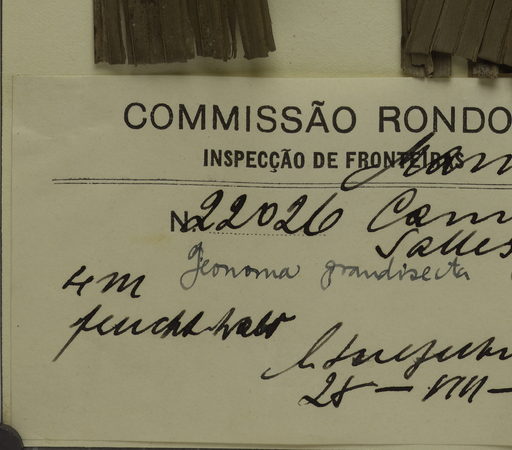 COMMISSÃO RONDO
INSPECÇÃO DE FRONTEIRAS
No 22026 Cam
Salles
Geonoma grandisecta
4 m
feuchter Wald
28 - VIII -